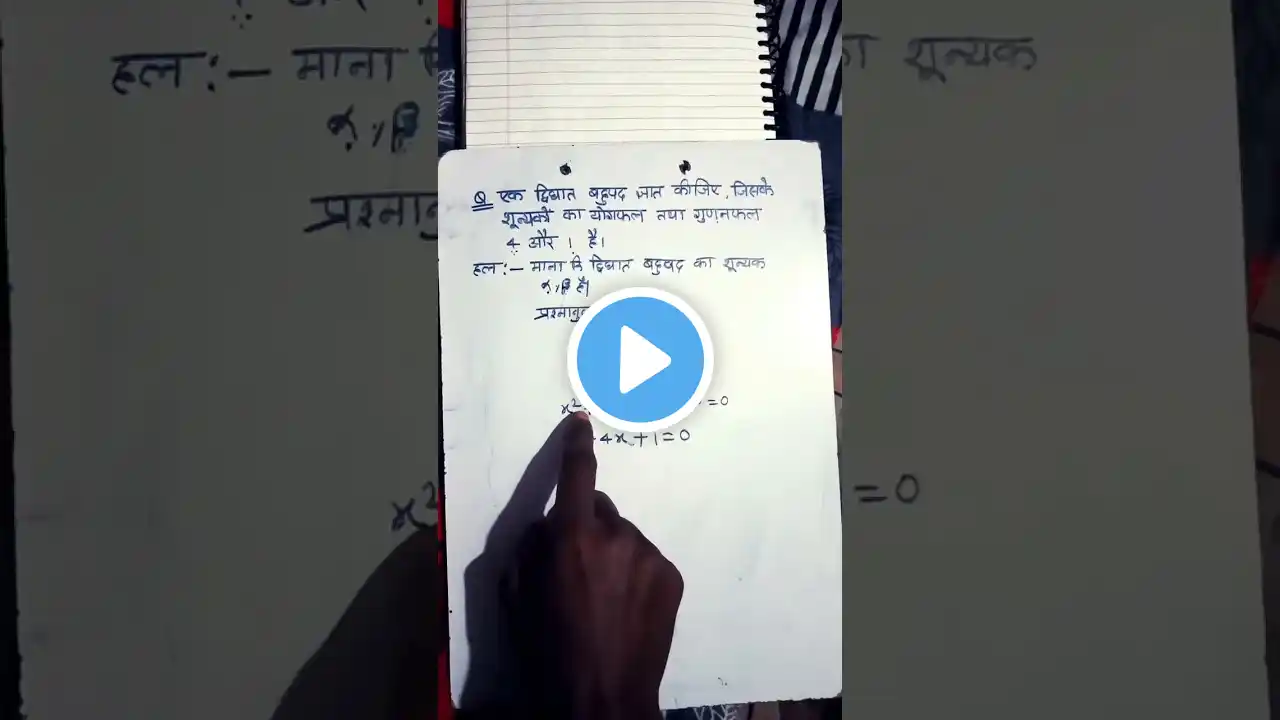 Q एक द्विघात बहुपद ज्ञात कीजिए, जिसके
शून्यकों का योगफल तथा गुणनफल
4 और 1 है।
हल:- माना कि द्विघात बहुपद का शून्यक
α, β है।
प्रश्नानु
x² =0
4x+1=0